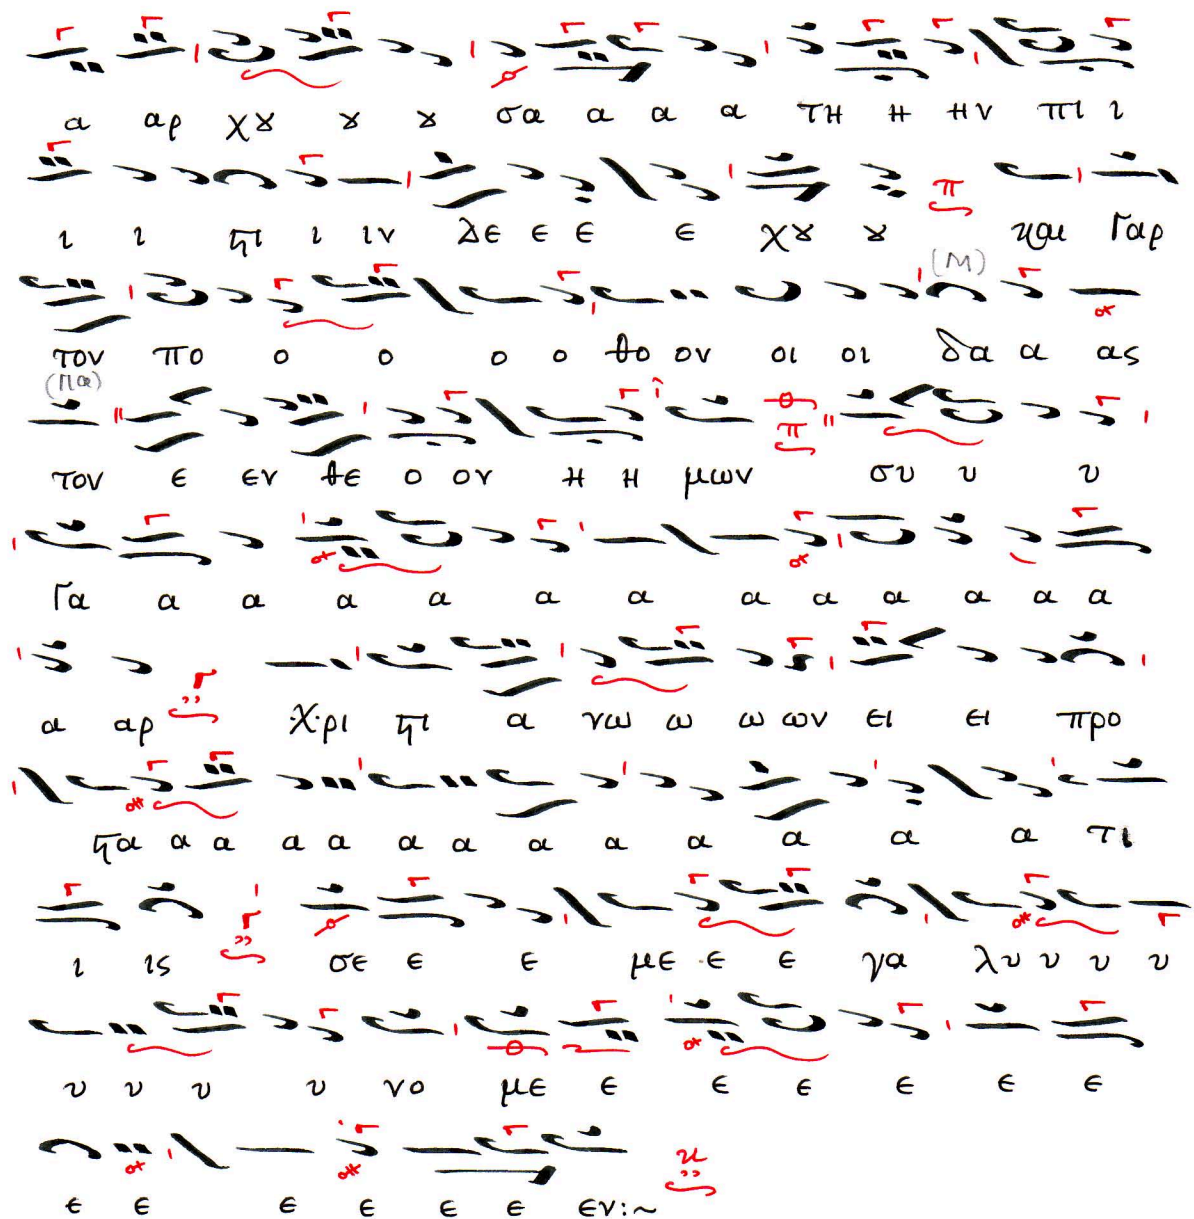 α αρ χȣ ȣ ȣ σα α α α τη η ην πι ι
ι ι ϛι ι ιν δε ε ε ε χȣ ȣ π και Γαρ
(Μ)
τον πο ο ο ο ο θο ον οι οι δα α ας
(Πα)
τον ε εν θε ο ον η η μων π συ υ υ
Γα α α α α α α α α α α α α
α αρ χρι ϛι α νω ω ω ων ει ει προ
ϛα α α α α α α α α α α α α τι
ι ις σε ε ε με ε ε γα λυ υ υ υ
υ υ υ υ νο με ε ε ε ε ε ε
ε ε ε ε ε ε εν:~